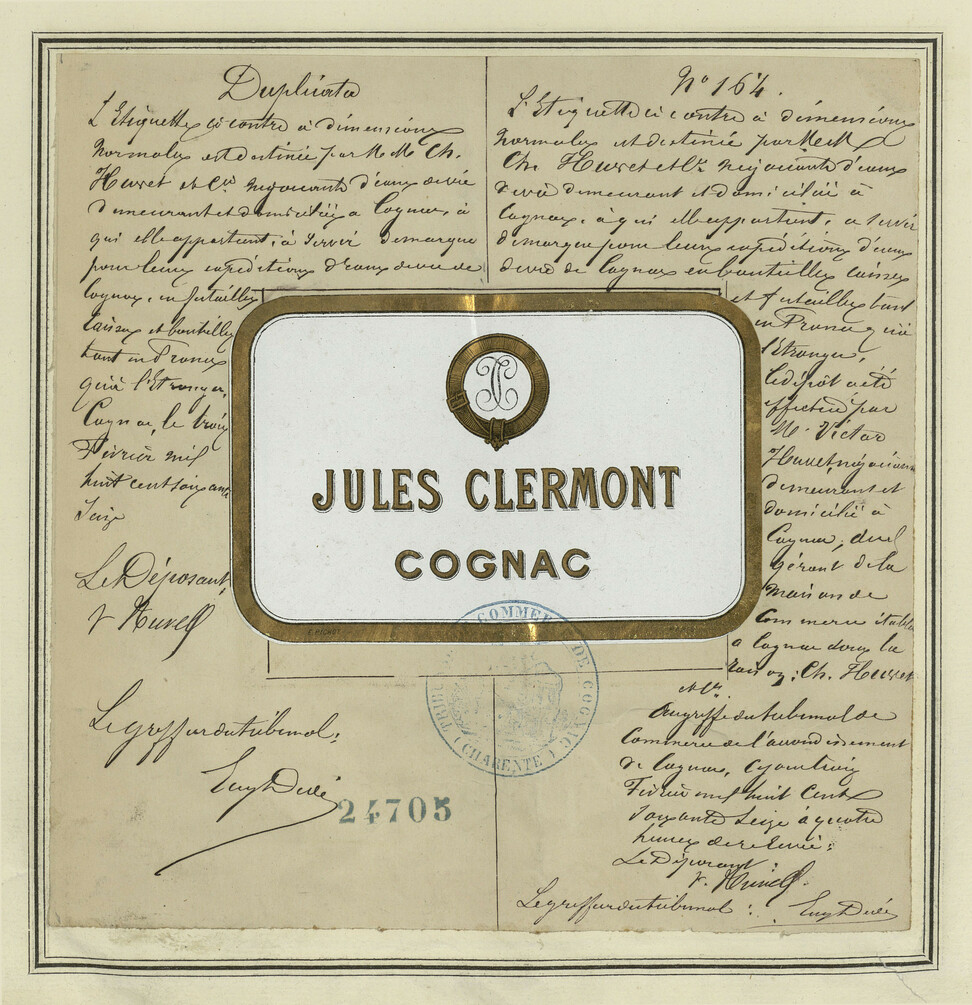 Duplicata
L'Etiquette ci contre à dimensions
Normales est destinée par M M Ch.
Huvet et Cie négociants d'eaux de vie
demeurant et domiciliés à Cognac, à
qui elle appartient, à servir de marque
pour leurs expéditions d'eaux de vie de
Cognac, en futailles
caisses et bouteilles
tant en France
qu'à l'Etranger,
Cognac, le trois
Février mil
huit cent soixante
Seize
Le Déposant,
V Huvet
Le greffier du tribunal:
24705
N° 164.
L'Etiquette ci contre à dimensions
Normales est destinée par M M
Ch. Huvet et Cie négociants d'eaux
de vie demeurant et domiciliés à
Cognac, à qui elle appartient, à servir
de marque pour leurs expéditions d'eaux
de vie de Cognac en bouteilles caisses
et futailles tant
en France qu'à
l'Etranger,
Le dépôt a été
effectué par
M. Victor
Huvet, négociant
demeurant et
domicilié à
Cognac, seul
gérant de la
maison de
Commerce établie
à Cognac sous la
raison: Ch. Huvet
et Cie.
Au greffe du tribunal de
Commerce de l'arrondissement
de Cognac, ce jour trois
Février mil huit cent
soixante seize à quatre
heures de relevée:
Le Déposant
V. Huvet.
Le greffier du tribunal:
JC
JULES CLERMONT
COGNAC
TRIB DE COMMERCE DE COGNAC
(CHARENTE)